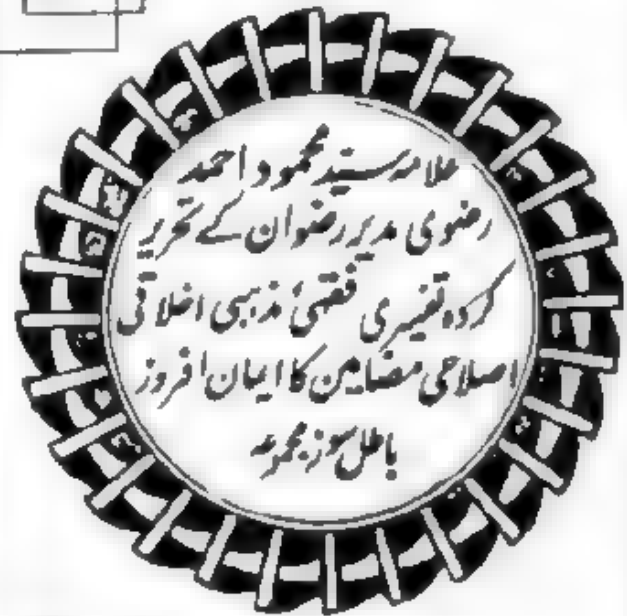 علامہ سیّد محمود احمد
رضوی مدیر رضوان کے تحریر
کردہ تفسیری فقہی مذہبی اخلاقی
اصلاحی مضامین کا ایمان افروز
باطل سوز مجموعہ